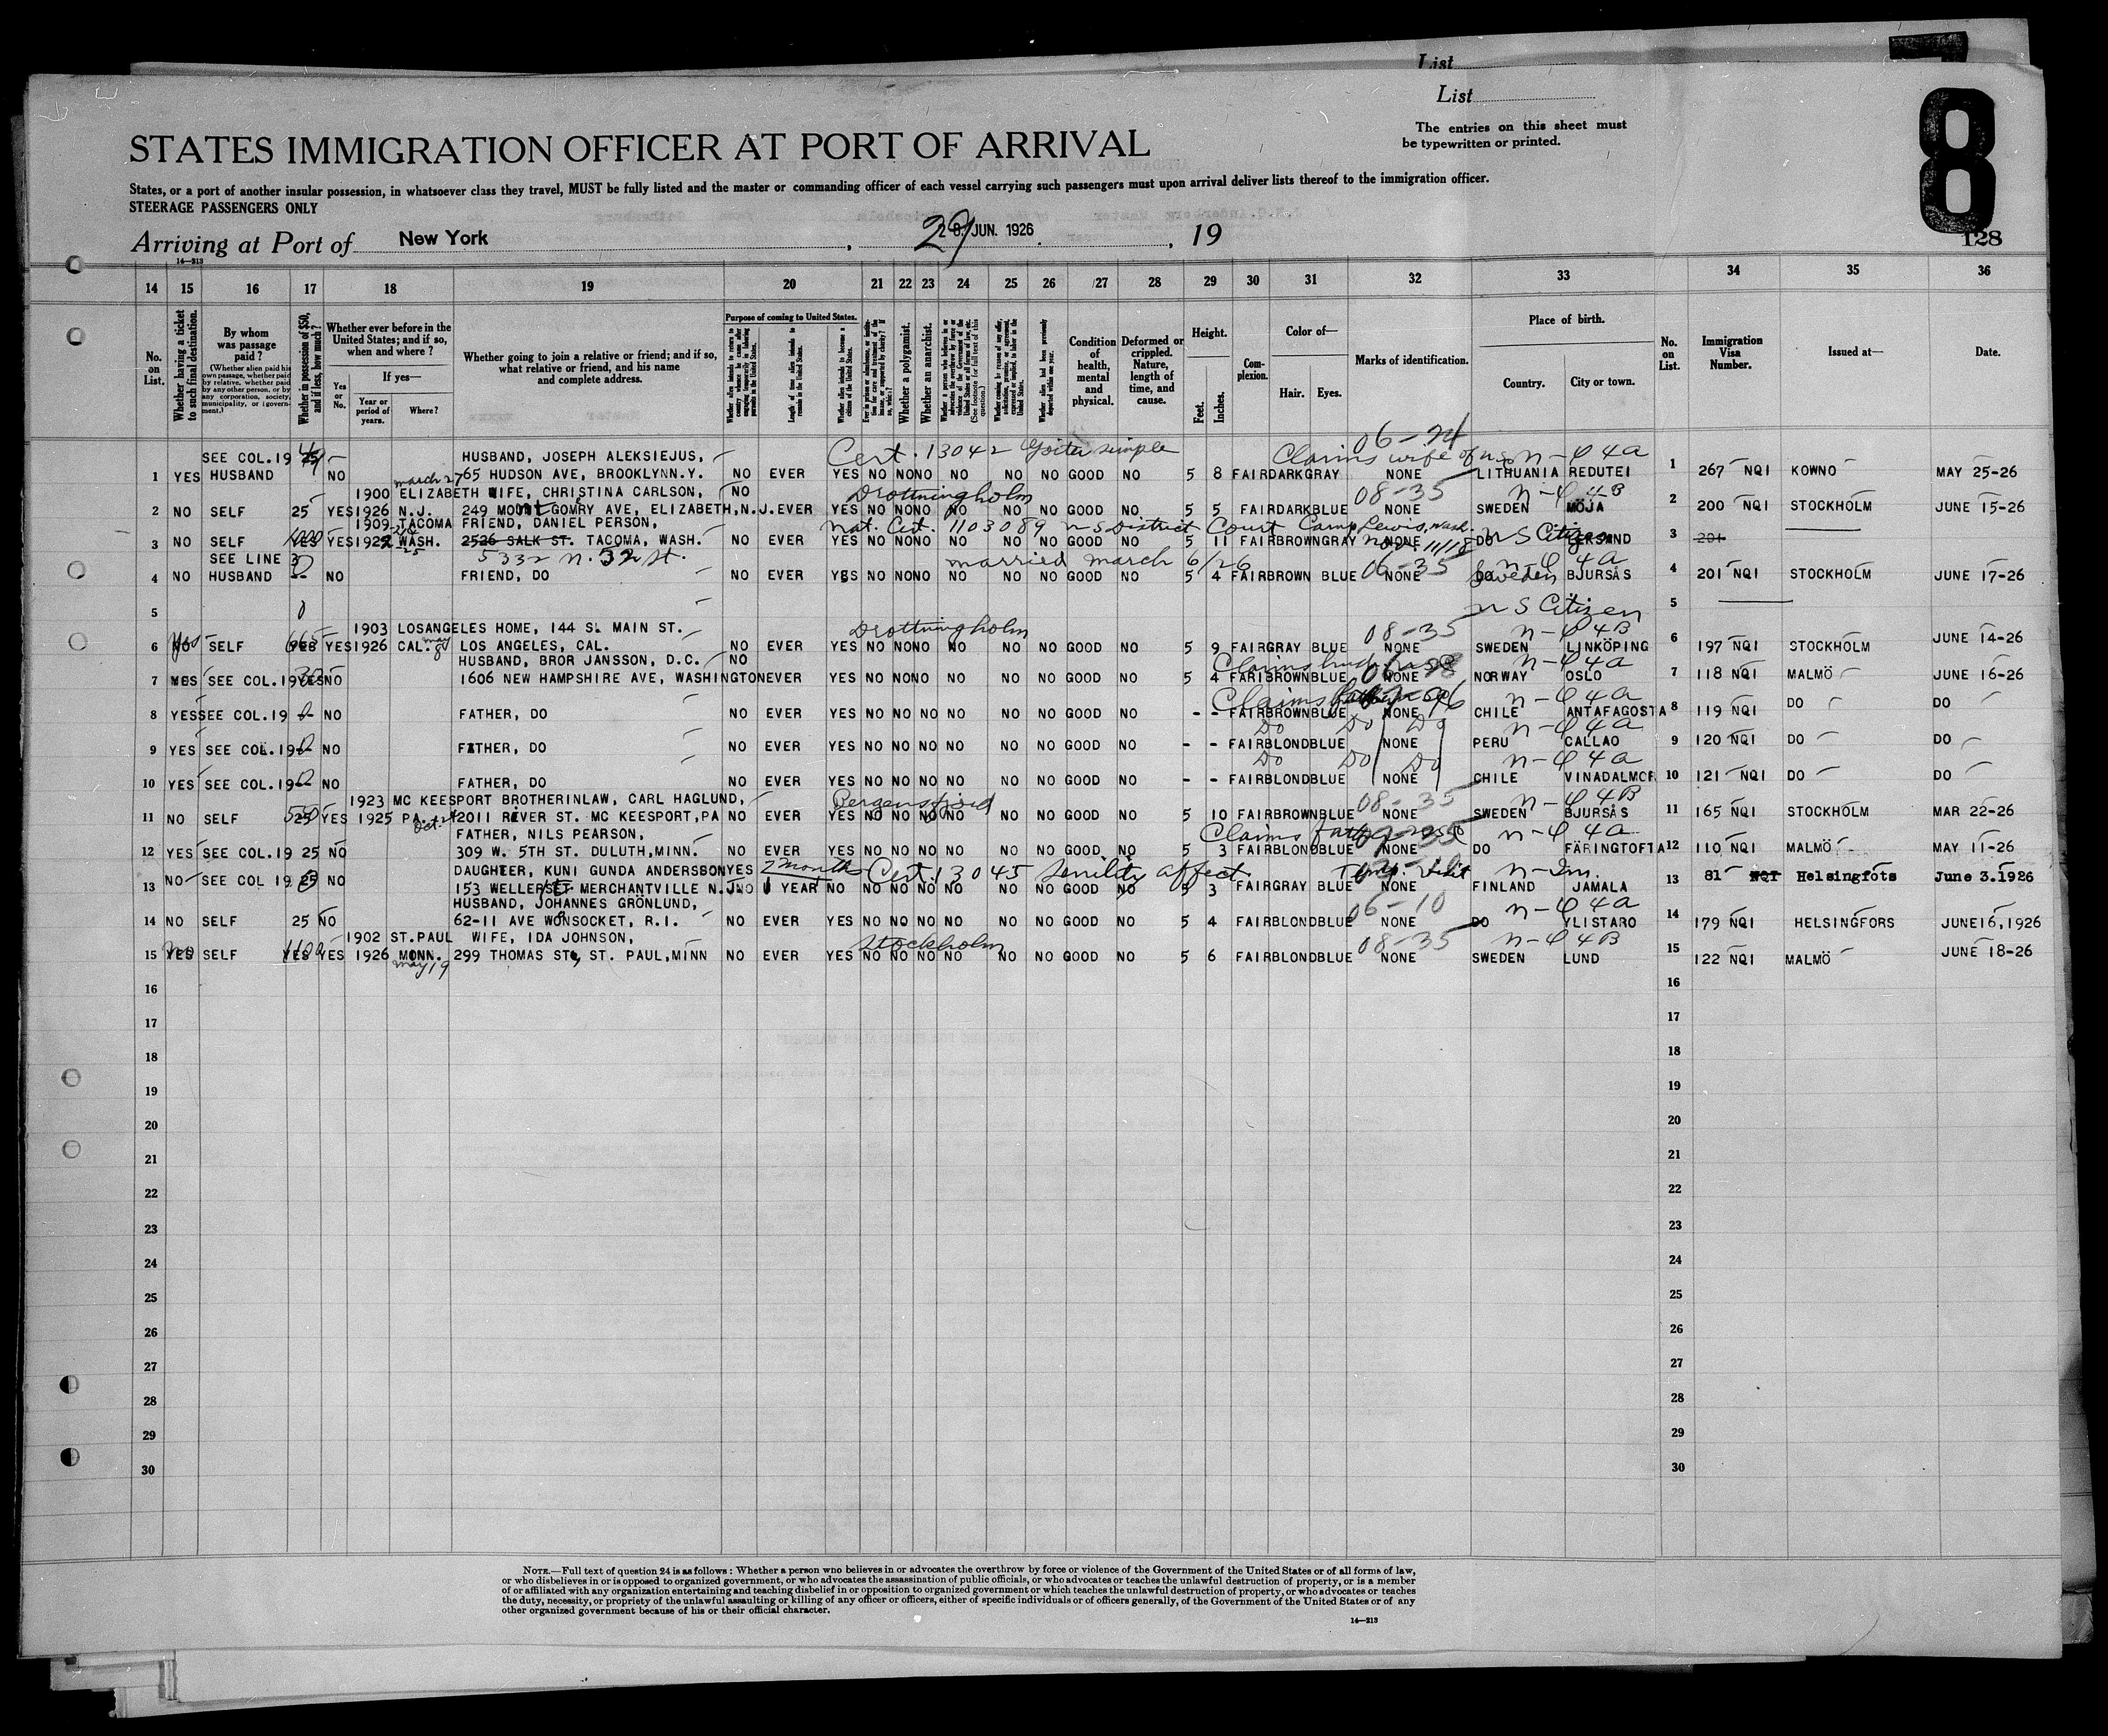 List
List
8
The entries on this sheet must
be typewritten or printed.
STATES IMMIGRATION OFFICER AT PORT OF ARRIVAL
States, or a port of another insular possession, in whatsoever class they travel, MUST be fully listed and the master or commanding officer of each vessel carrying such passengers must upon arrival deliver lists thereof to the immigration officer.
STEERAGE PASSENGERS ONLY
Arriving at Port of New York, 29 JUN. 1926, 19
128
14—213
14 15 16 17 18 19 20 21 22 23 24 25 26 27 28 29 30 31 32 33 34 35 36
No. on List.
Whether having a ticket to such final destination.
By whom was passage paid?
(Whether alien paid his own passage, whether paid by relative, whether paid by any other person, or by any corporation, society, municipality, or government.)
Whether in possession of $50, and if less, how much?
Whether ever before in the United States; and if so, when and where?
If yes—
Yes or No.
Year or period of years.
Where?
Whether going to join a relative or friend; and if so, what relative or friend, and his name and complete address.
Purpose of coming to United States.
Length of time alien intends to remain in the United States.
Whether alien intends to become a citizen of the United States.
Whether a polygamist.
Whether an anarchist.
Condition of health, mental and physical.
Deformed or crippled. Nature, length of time, and cause.
Height.
Feet. Inches.
Complexion.
Color of—
Hair. Eyes.
Marks of identification.
Place of birth.
Country. City or town.
No. on List.
Immigration Visa Number.
Issued at—
Date.
SEE COL.19 HUSBAND, JOSEPH ALEKSIEJUS, Cert. 13042 Goiter simple 06-24 Claims wife of n-O 4a
1 YES HUSBAND NO 765 HUDSON AVE, BROOKLYN.N.Y. NO EVER YES NO NO NO NO NO NO GOOD NO 5 8 FAIR DARK GRAY NONE LITHUANIA REDUTEI 1 267 NQI KOWNO MAY 25-26
march 27
1900 ELIZABETH WIFE, CHRISTINA CARLSON, NO Drottningholm 08-35 n-O 4-B
2 NO SELF 25 YES 1926 N.J. 249 MONTGOMRY AVE, ELIZABETH,N.J. EVER YES NO NO NO NO NO NO GOOD NO. 5 5 FAIR DARK BLUE NONE SWEDEN MÖJA 2 200 NQI STOCKHOLM JUNE 15-26
1909 TACOMA FRIEND, DANIEL PERSON, Nat. Cert. 1103089 U S District Court Camp Lewis, Wash.
3 NO SELF YES YES WASH. 2526 SALK ST. TACOMA, WASH. NO EVER YES NO NO NO NO NO NO GOOD NO 5 11 FAIR BROWN GRAY NONE DO U S Citizen 3 201
SEE LINE 3 5332 N. 32 St. married march 6/26 06-35 n-O 4a
4 NO HUSBAND -- NO FRIEND, DO NO EVER YES NO NO NO NO NO NO GOOD NO 5 4 FAIR BROWN BLUE NONE Sweden BJURSÅS 4 201 NQI STOCKHOLM JUNE 17-26
5 U S Citizen 5
1903 LOSANGELES HOME, 144 S. MAIN ST. Drottningholm 08-35 n-O 4B
6 NO yes SELF YES 1926 CAL. may 8 LOS ANGELES, CAL. NO EVER YES NO NO NO NO NO NO GOOD NO 5 9 FAIR GRAY BLUE NONE SWEDEN LINKÖPING 6 197 NQI STOCKHOLM JUNE 14-26
HUSBAND, BROR JANSSON, D.C. NO Claims husb n-O 4a
7 YES SEE COL.19 YES NO 1606 NEW HAMPSHIRE AVE, WASHINGTON EVER YES NO NO NO NO NO NO GOOD NO 5 4 FARI BROWN BLUE NONE NORWAY OSLO 7 118 NQI MALMÖ JUNE 16-26
Claims n-O 4a
8 YES SEE COL.19 NO FATHER, DO NO EVER YES NO NO NO NO NO NO GOOD NO - - FAIR BROWN BLUE NONE CHILE ANTAFAGOSTA 8 119 NQI DO DO
Do Do Do n-O 4a
9 YES SEE COL.19 NO FATHER, DO NO EVER YES NO NO NO NO NO NO GOOD NO - - FAIR BLOND BLUE NONE PERU CALLAO 9 120 NQI DO DO
Do Do Do n-O 4a
10 YES SEE COL.19 NO FATHER, DO NO EVER YES NO NO NO NO NO NO GOOD NO - - FAIR BLOND BLUE NONE CHILE VINADALMCR 10 121 NQI DO DO
1923 MC KEESPORT BROTHERINLAW, CARL HAGLUND, Bergensfjord 08-35 n-O 4B
11 NO SELF YES 1925 PA. Oct. 2011 RIVER ST. MC KEESPORT,PA NO EVER YES NO NO NO NO NO NO GOOD NO 5 10 FAIR BROWN BLUE NONE SWEDEN BJURSÅS 11 165 NQI STOCKHOLM MAR 22-26
FATHER, NILS PEARSON, Claims father n-O 4a
12 YES SEE COL.19 25 NO 309 W. 5TH ST. DULUTH,MINN. NO EVER YES NO NO NO NO NO NO GOOD NO 5 3 FAIR BLOND BLUE NONE DO FÄRINGTOFTA 12 110 NQI MALMÖ MAY 11-26
DAUGHTER, KUNI GUNDA ANDERSBON YES 2 months Cert. 13045 Senility affect. Temp. Visit n-Im.
13 NO SEE COL 19 25 NO 153 WELLER ST MERCHANTVILLE N.J. NO 1 YEAR NO NO NO NO NO NO NO GOOD NO 5 3 FAIR GRAY BLUE NONE FINLAND JAMALA 13 81 NQI Helsingfots June 3.1926
HUSBAND, JOHANNES GRÖNLUND, 06-10 n-O 4a
14 NO SELF 25 NO 62-11 AVE WONSOCKET, R.I. NO EVER YES NO NO NO NO NO NO GOOD NO 5 4 FAIR BLOND BLUE NONE DO YLISTARO 14 179 NQI HELSINGFORS JUNE16,1926
1902 ST.PAUL WIFE, IDA JOHNSON, Stockholm 08-35 n-O 4B
15 YES no SELF YES YES 1926 MONN. may 19 299 THOMAS ST, ST. PAUL,MINN NO EVER YES NO NO NO NO NO NO GOOD NO 5 6 FAIR BLOND BLUE NONE SWEDEN LUND 15 122 NQI MALMÖ JUNE 18-26
16 16
17 17
18 18
19 19
20 20
21 21
22 22
23 23
24 24
25 25
26 26
27 27
28 28
29 29
30 30
NOTE.—Full text of question 24 is as follows: Whether a person who believes in or advocates the overthrow by force or violence of the Government of the United States or of all forms of law,
or who disbelieves in or is opposed to organized government, or who advocates the assassination of public officials, or who advocates or teaches the unlawful destruction of property, or is a member
of or affiliated with any organization entertaining and teaching disbelief in or opposition to organized government or which teaches the unlawful destruction of property, or who advocates or teaches
the duty, necessity, or propriety of the unlawful assaulting or killing of any officer or officers, either of specific individuals or of officers generally, of the Government of the United States or of any
other organized government because of his or their official character.
14—213